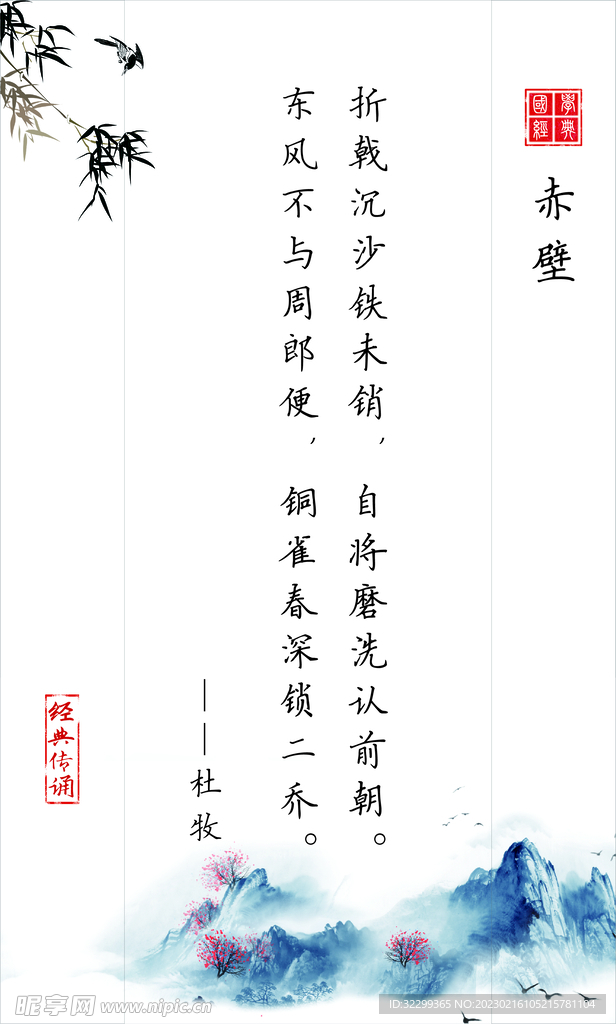 國學經典
赤壁
折戟沉沙铁未销，自将磨洗认前朝。
东风不与周郎便，铜雀春深锁二乔。
——杜牧
经典传诵
昵享网 www.nipic.cn
ID:32299365 NO:20230216105215781104